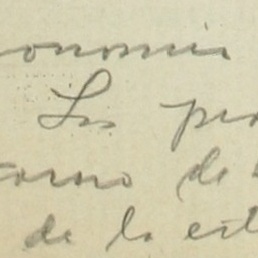 onomia
Los pro
torno de
de la est